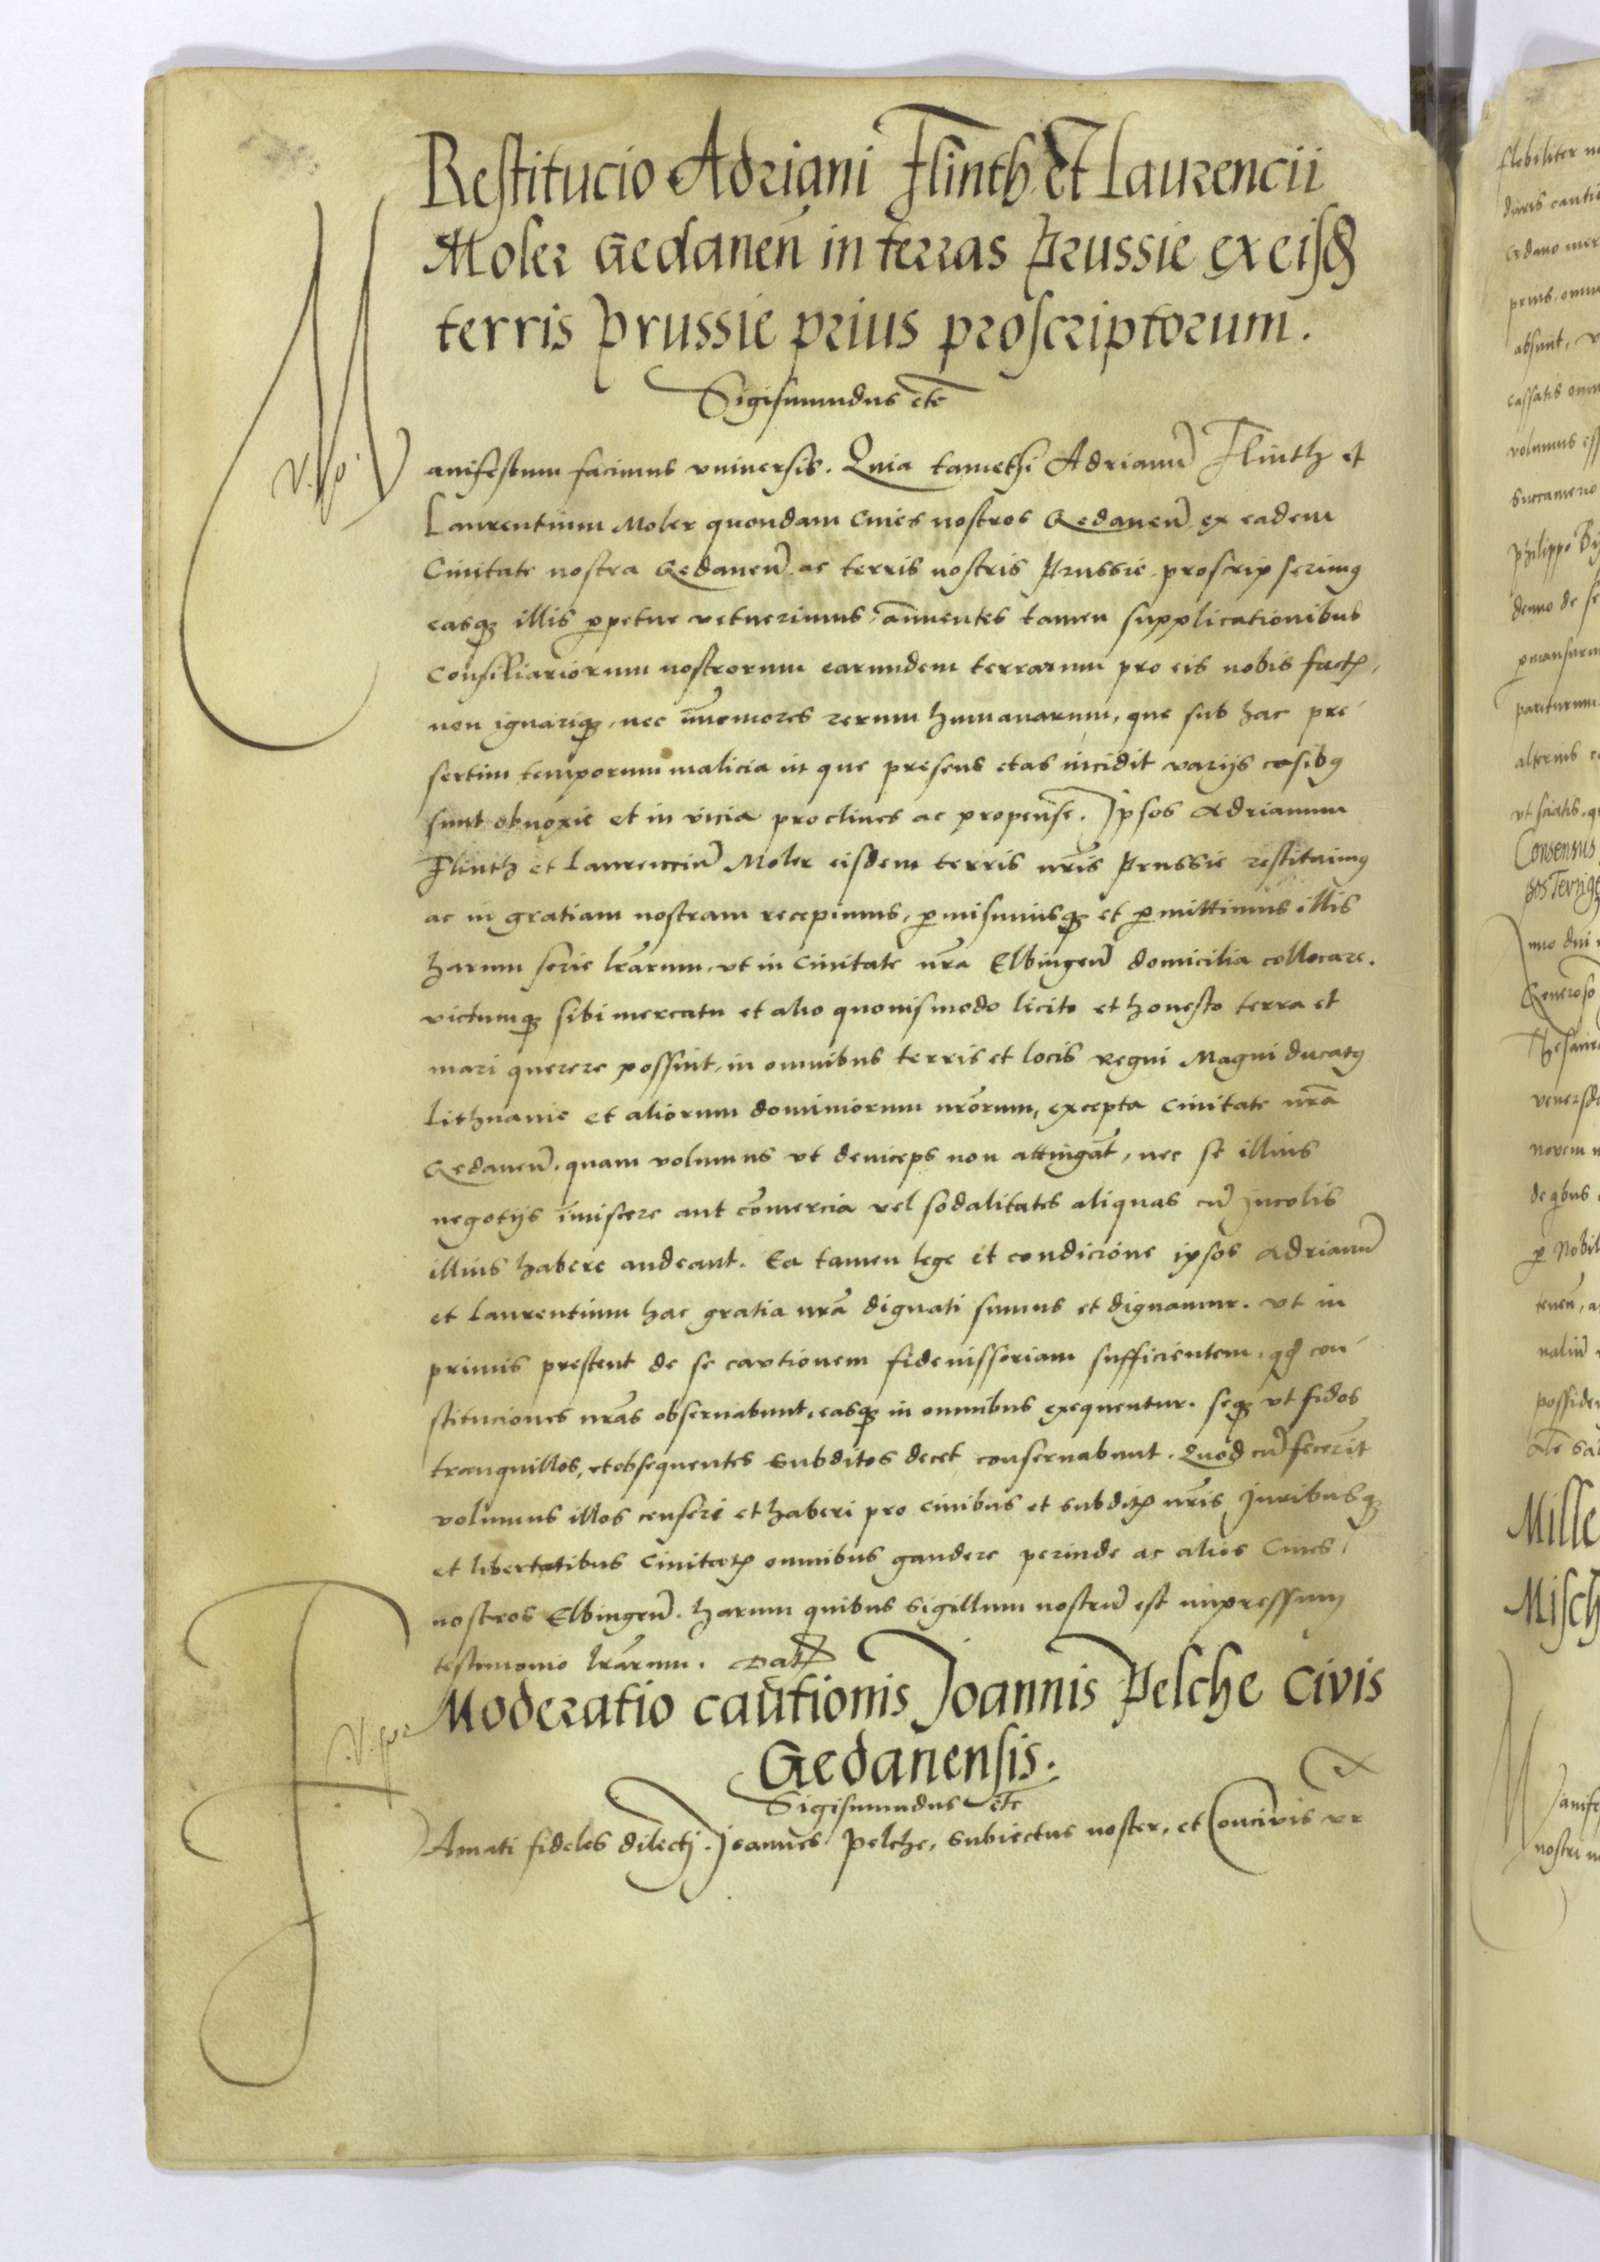 Restitucio Adriani Flinth et Laurencii
Moler Gedanen̄ in terras Prussie ex eisd
terris Prussie prius proscriptorum.
Sigismundus etc̄
Manifestum facimus vniversis. Quia tamethi Adrianū Flinth et
Laurentium Moler quondam Cives nostros Gedanen̄ ex eadem
Civitate nostra Gedanen̄ ac terris nostris Prussie proscripserimꝰ
easqꝫ illis ꝑpetue vetuerimus, anūentes tamen supplicationibus
Consiliariorum nostrorum earundem terrarum pro eis nobis factꝭ,
non ignariqꝫ, nec im̄emores rerum humanarum, que sub hac pre-
sertim temporum malicia in que presens etas incidit varijs casibꝰ
sunt obnoxie et in vicia proclives ac propense. Ipsos Adrianum
Flinth et Laurenciū Moler eisdem terris nr̄is Prussie restituimꝰ
ac in gratiam nostram recepimus, ꝑmisimusqꝫ et ꝑmittimus illis
harum serie lr̄arum, vt in Civitate nr̄a Elbingen̄ domicilia collocare.
victumqꝫ sibi mercatu et alio quovismodo licito et honesto terra et
mari querere possint, in omnibus terris et locis Regni Magni ducatꝰ
Lithuanie et aliorum dominiorum nr̄orum, excepta Civitate nr̄a
Gedanen̄. quam volumus vt deinceps non attingāt, nec se illius
negotijs im̄iscere aut com̄ercia vel sodalitates aliquas cū Incolis
illius habere audeant. Ea tamen lege et condicione ipsos Adrianū
et Laurentium hac gratia nr̄a dignati sumus et dignamur. vt in
primis prestent de se cautionem fideiussoriam sufficientem, qd con-
stituciones nr̄as observabunt, easqꝫ in omnibus exequentur. seqꝫ vt fidos
tranquillos, et obsequentes Subditos decet conservabunt. Quod cū fecerīt
volumus illos censeri et haberi pro Civibus et Subditꝭ nr̄is Juribusqꝫ
et libertatibus Civitatꝭ omnibus gaudere perinde ac alios Cives
nostros Elbingen̄. Harum quibus Sigillum nostrū est impressum
testimonio lr̄arum. Datꝭ
Moderatio cautionis Joannis Pelche civis
Gedanensis.
Sigismundus etc̄
Famati fideles dilecti. Joannes Pelche, Subiectus noster, et Concivis vr